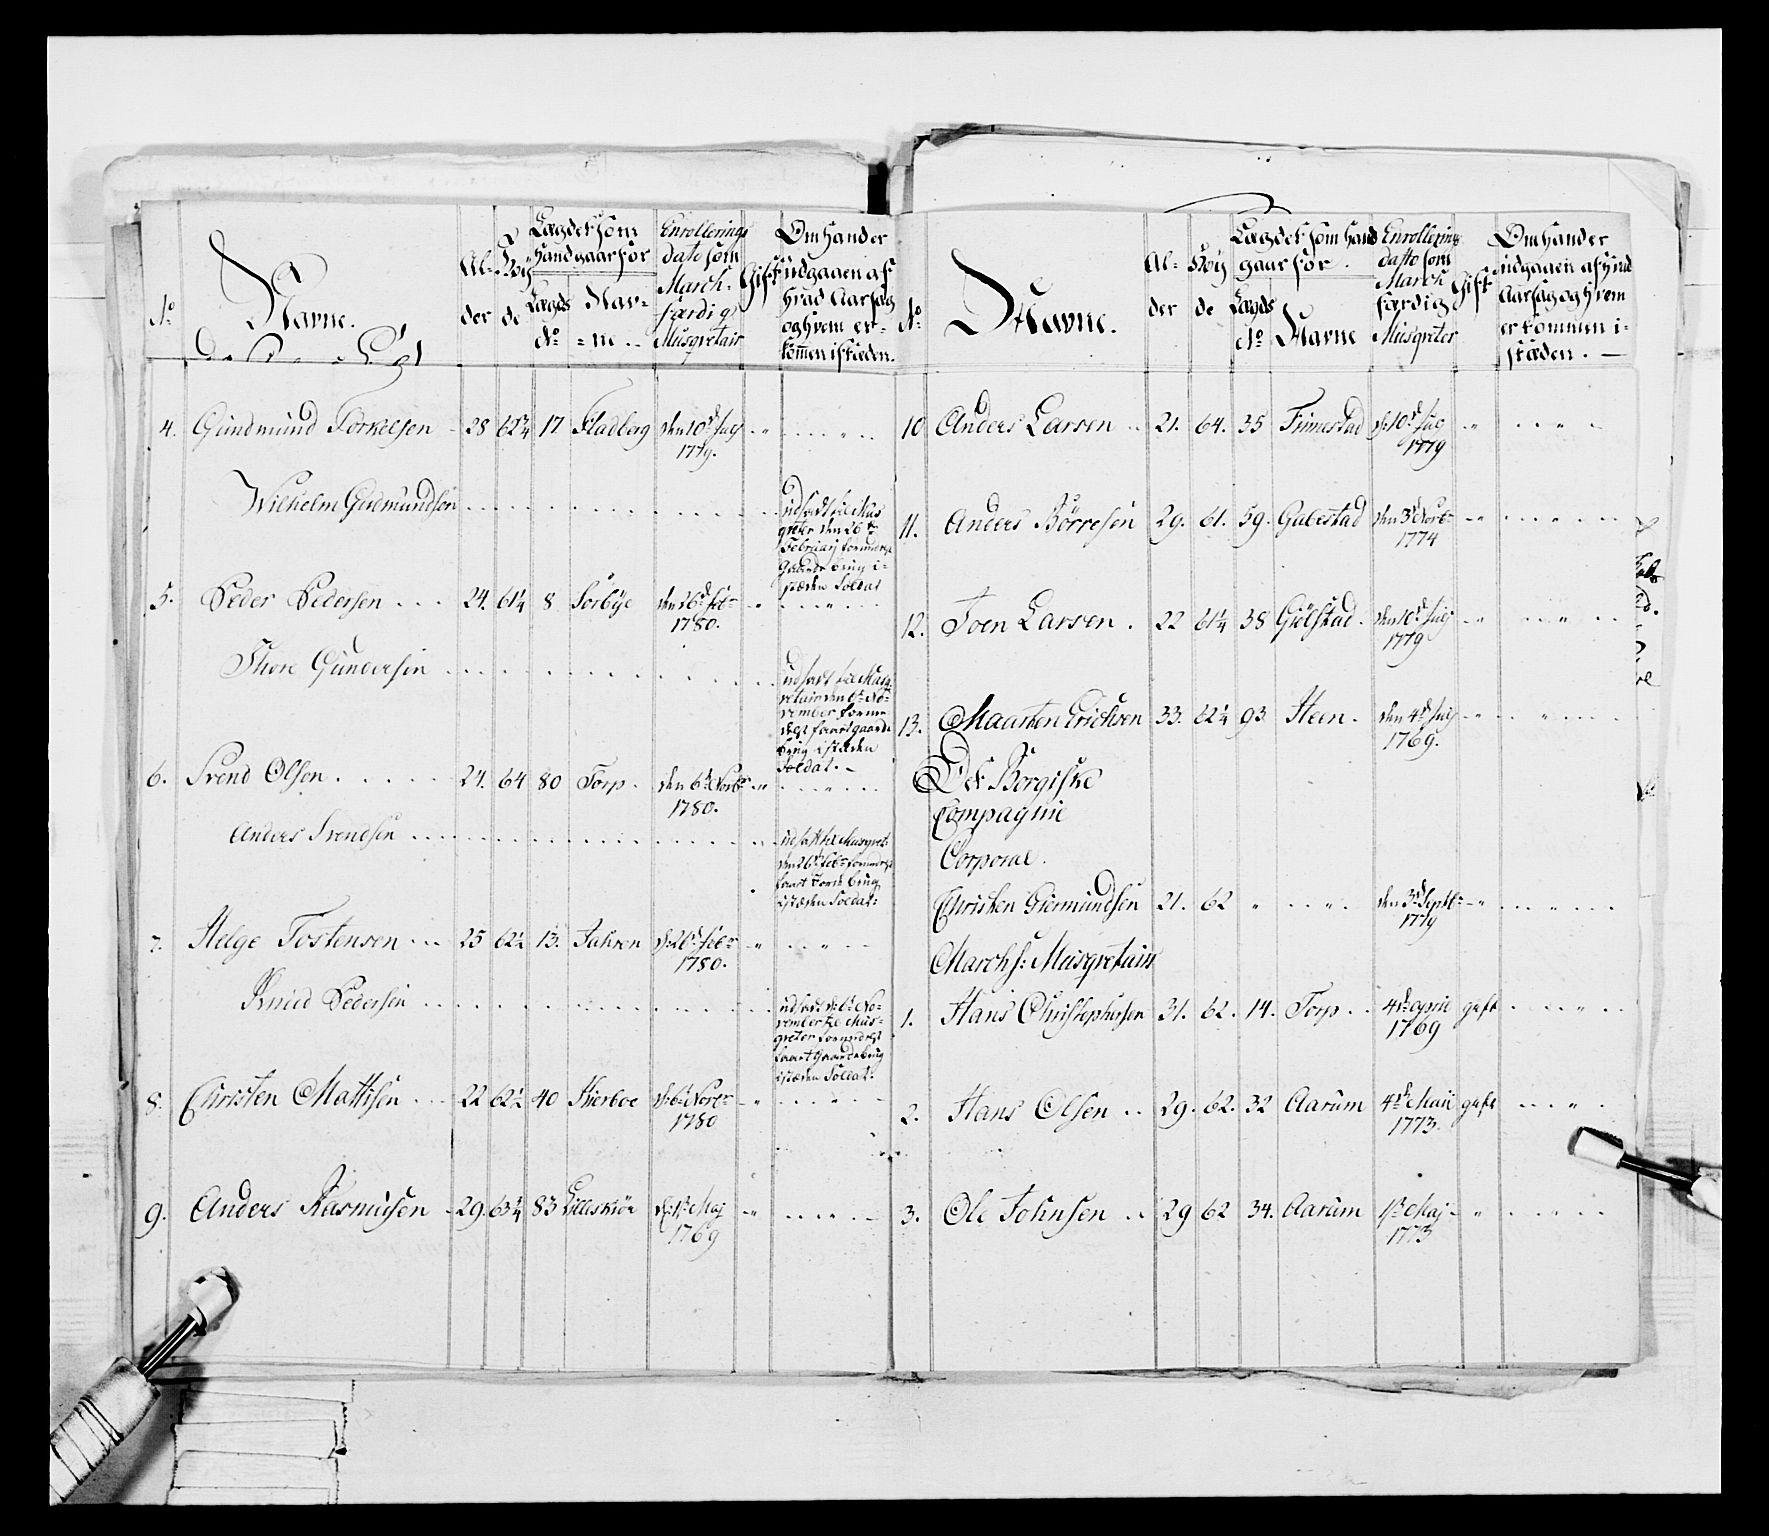 No
Navne.
Al-
der
Höy
de
Lægdet som
Hand gaar for
Lægds
No
Nav-
=ne ..
Enrollerings
dato som
March-
færdig
Musqretair
Gift
Om Hand er
udgaaen af
hvad Aarsag
og hvem er-
kommen i stæden.
4. Gundmund Torkelsen 28 62 3/4 17 Fladberg den 10d July
1779.
Wilhelm Gudmundsen udsadt til Mus
qreter den 26de
Februarij formedelst
Gaarde brug i-
stæden Soldat
5. Peder Pedersen . . . 24. 61 1/4 8 Sorbye den 26d Feb
1780.
Thore Gundersen udsadt til Musq
retair den 6te No-
vember formedelst
Gaarde
brug i stæden
Soldat. -
6. Svend Olsen . . . . . 24. 64 80 Torp. den 6te Novbr
1780.
Anders Svendsen udsatt til Musqret:
den 26d Feb formedelst
brug
i stæden Soldat:
7. Helge Tostensen . . . 25 62 1/2 13. Jahren d: 26d Febr
1780.
Knud Pedersen udsadt d: 6te No-
vember til Mus-
qreter formedelst
Gaarde brug
i stæden Soldat:
8. Christen Mattisen . . . 22 62 1/2 40 Skierboe d: 6te Novbr
1780
9. Anders Rasmusen 29. 63 3/4 83 Lilleskiör d: 1te Maj
1769
No
Navne.
Al-
der
Höy
de
Lægdet som Hand
gaar for.
Lægds
No
Navne
Enrollering
datto som
March
færdig
Musqreter
Gift
Om Hand er
udgaaen af hvad
Aarsag og hvem
er kommen i-
stæden. -
10 Anders Larsen .. 21. 64. 35 Finnestad d: 10d July
1779
11. Anders Börresen 29. 61. 59. Gabestad den 3d Novbr
1774
12. Joen Larsen . 22 61 1/4 38 Gielstad. den 10d July
1779
13. Maarten Erichsen 33. 62 1/4 93 Steen. den 4d July
1769.
Det Borgiske
Compagnie
Corporal.
Christen Giermundsen 21. 62 den 3d Septbr
1779
Marchf: Musqretairr
1. Hans Christophersen 31. 62. 14. Torp .. 4de April gift
1769
2. Hans Olsen .. 29. 62. 32 Aarum 4de Maii gift
1773.
3. Ole Johnsen .. 29 62 34. Aarum 1te Maj
1773